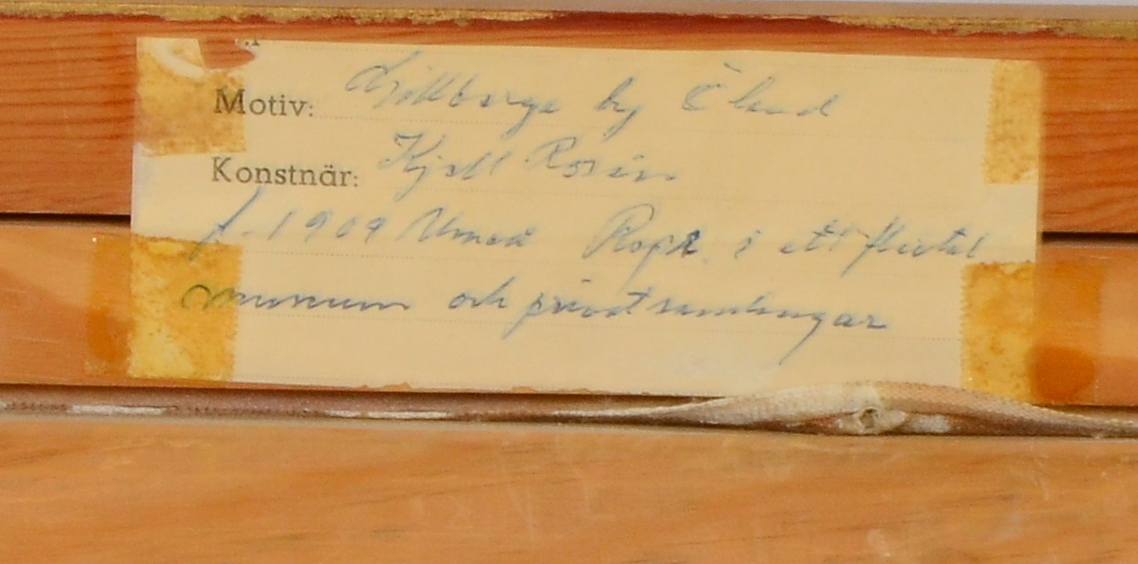 Motiv: by Öland
Konstnär: Kjell Rosén
f. 1909 Umeå Repr. i ett flertal
museum och privatsamlingar